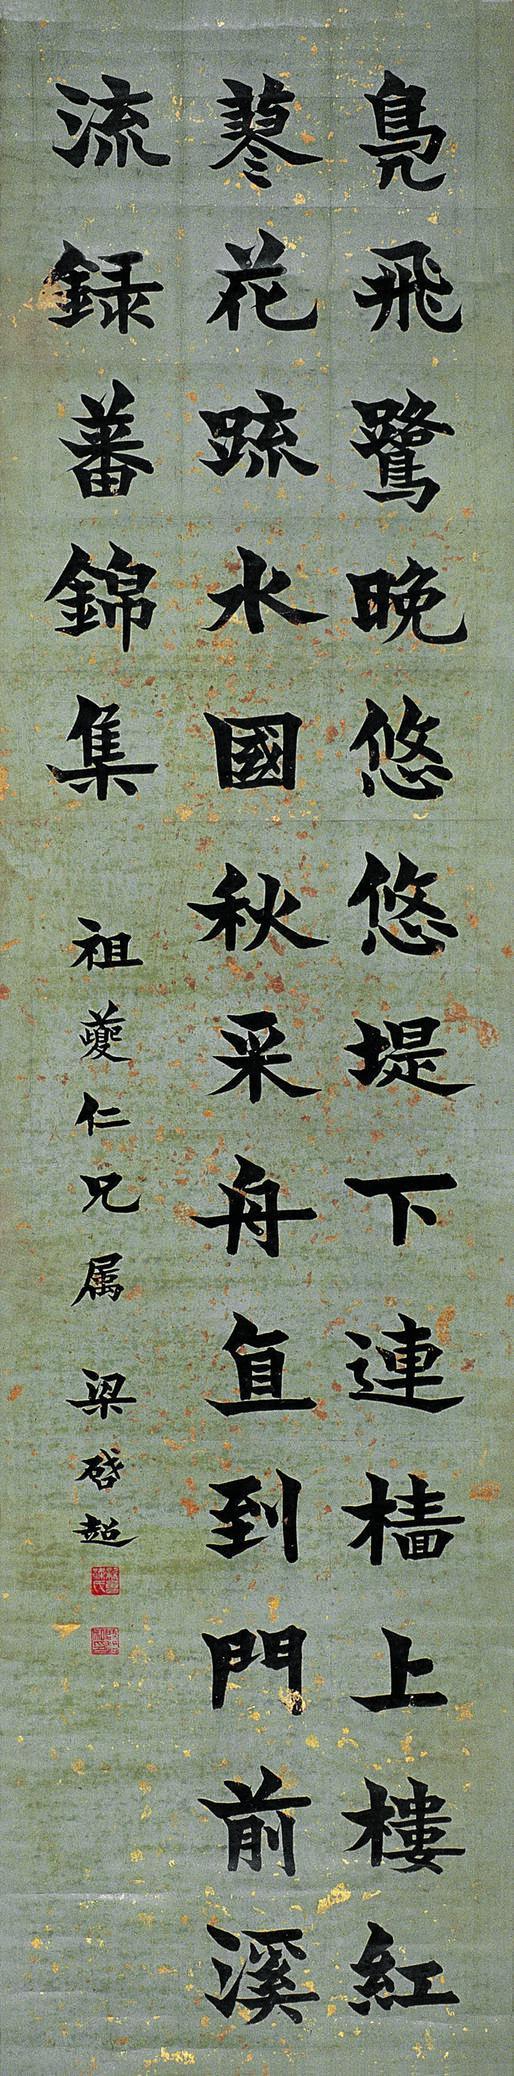 鳧飛鷺晚悠悠堤下連檣上樓紅
蓼花疏水國秋采舟直到門前溪
流録蕃錦集
祖夔仁兄属 梁啓超